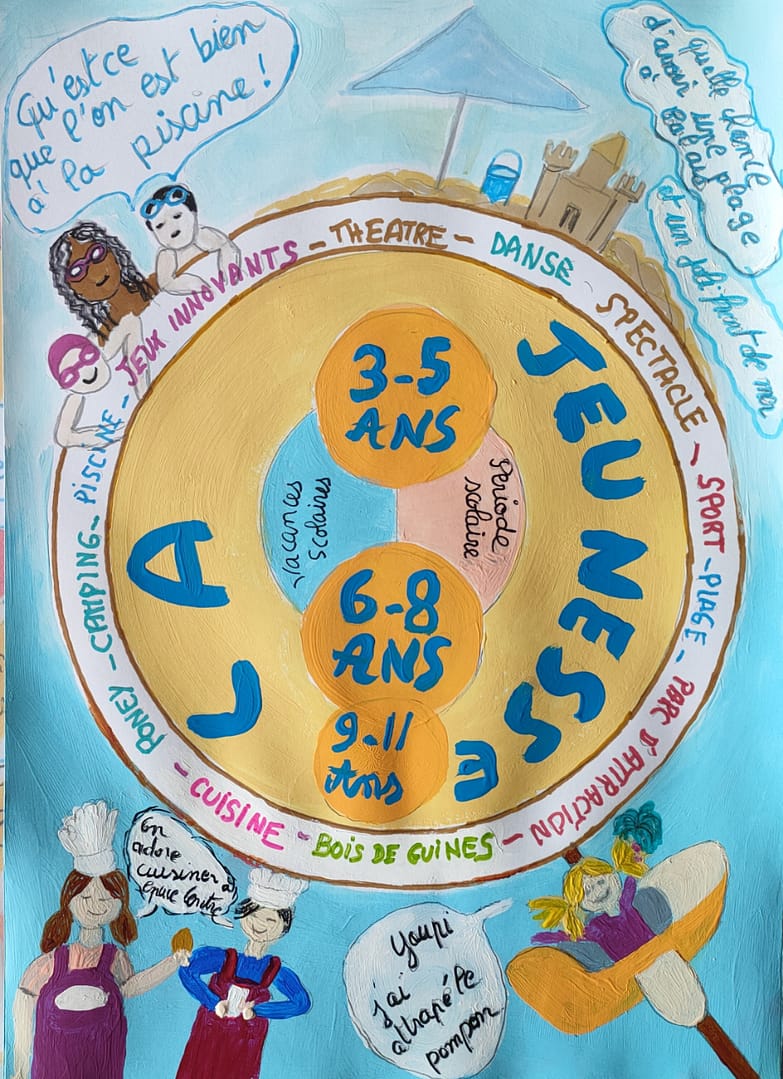 Qu'est ce
que l'on est bien
à la piscine!
quelle chance
d'avoir une plage
à Calais
et un joli front de mer
PONEY - CAMPING - PISCINE - JEUX INNOVANTS - THEATRE - DANSE
SPECTACLE - SPORT - PLAGE - PARC D'ATTRACTION - BOIS DE GUINES - CUISINE -
LA JEUNESSE
3-5
ANS
Vacances
scolaires
Période
scolaire
6-8
ANS
9-11
Ans
On
adore
cuisiner à
Youpi
j'ai
attrapé le
pompon